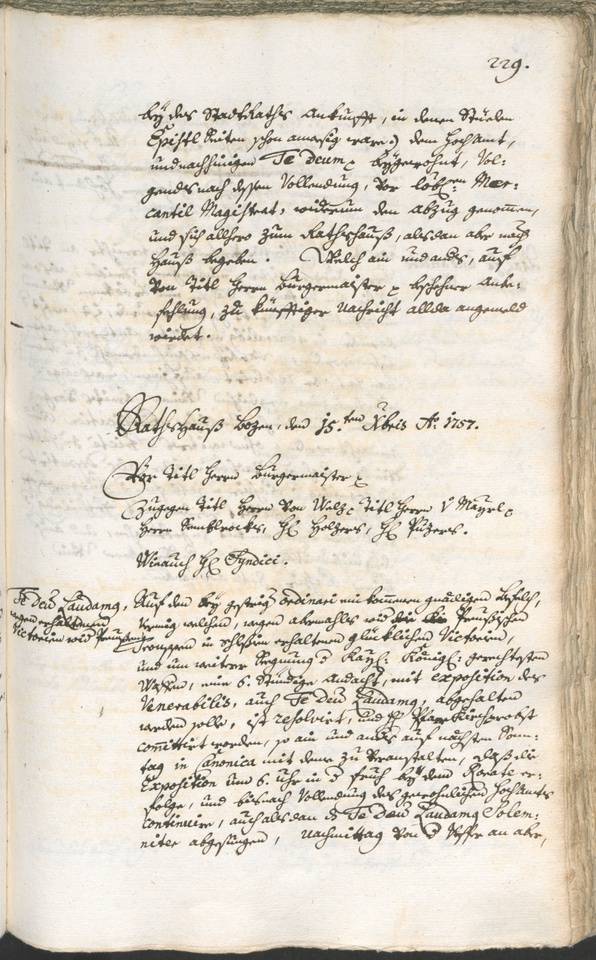 229.
bey des Stadt Raths Ankunfft, in denen Stüelen
Epistl Seiten schon anwesig ware) dem HochAmt,
und nachhinigen Te Deum beygewohnt, Vol-
gendts nach dessen Vollendung, vor löbl: Mer-
cantil Magistrat, widerum den abzug genommen,
und sich allhero zum Rathshauß, alsdan aber nach
Hauß begeben. Welch ain und anders, auf
von Titl Herrn Burgermaister beschehner Anbe-
fehlung, zu künfftiger Nachricht allda angemeld
wirdet.
Rathshauß Bozen, den 15.ten Xbris Ao. 1757.
Vor Titl Herrn Burgermaister
Zugegen Titl Herrn von Titl Herrn V Mayrl
Herrn Holzers, Hr
Wie auch Hr Syndici.
Te Deu Laudamg,
wegen erhaltenen
Victorien wid Preussen
Auf den bey gestrig ordinari einkommen gnädigen Befelch,
vermig welchen, wegen abermahls wid die Preusischen
Trouppen in schlesien erhaltenen glücklichen Victorien,
und um weitere Segnung d Kayl: Königl: gerechtesten
Waffen, eine 6. stündige Andacht, mit exposition des
Venerabilis, auch Te Deu Laudamg, abgehalten
werden solle, ist resolvirt, und H Pfarr Kirchprobst
comittirt worden, so ain und anders auf nächsten Sonn-
tag in Canonica mit deme zu veranstalten, daß die
Exposition um 6. uhr in d Frueh bey dem Rorate er-
folge, und bis nach Vollendung des gewohnlichen HochAmts
continuire, auch alsdan ds Te Deu Laudamg Solem-
niter abgesungen, Nachmittag von d Vesper an aber,